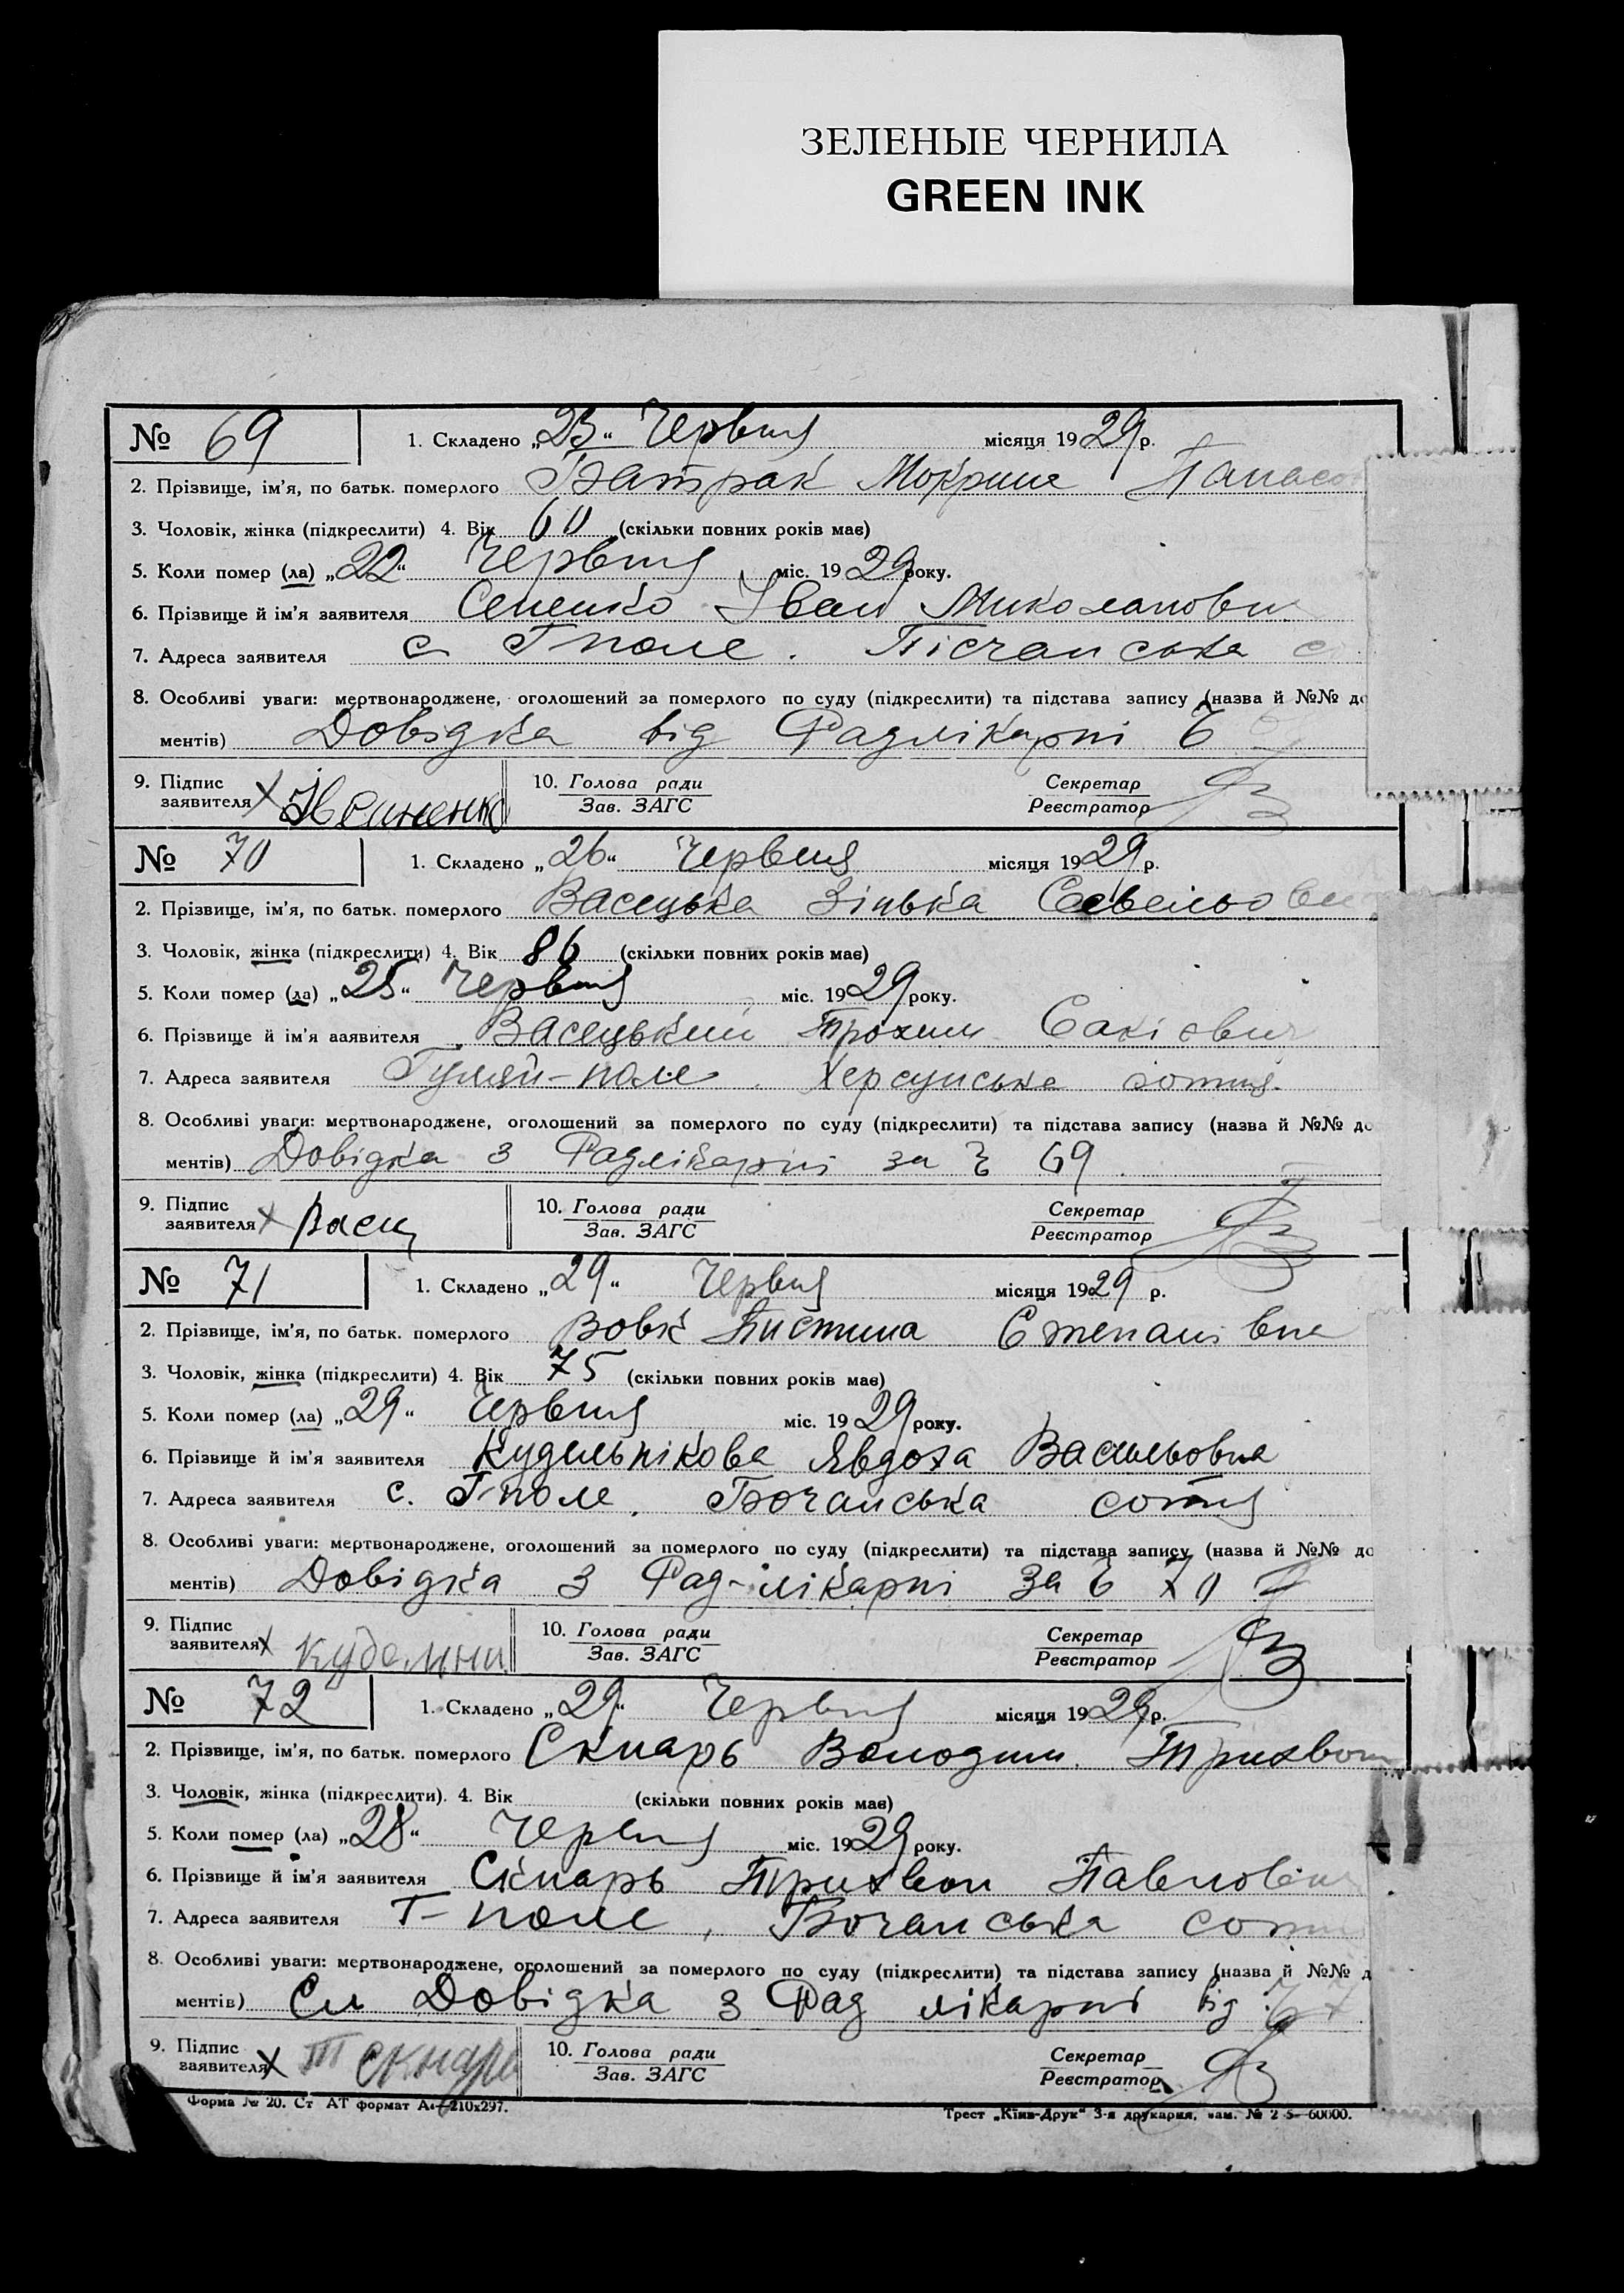 ЗЕЛЕНЫЕ ЧЕРНИЛА
GREEN INK
№ 69 1. Складено „23“ Червня місяця 1929 р.
2. Прізвище, ім'я, по батьк. померлого Батрак Мокрина Панасо
3. Чоловік, жінка (підкреслити) 4. Вік 60 (скільки повних років має)
5. Коли помер (ла) „22“ Червня міс. 1929 року.
6. Прізвище й ім'я заявителя Іван Миколайови
7. Адреса заявителя с Г поле. Пісчанська с
8. Особливі уваги: мертвонароджене, оголошений за померлого по суду (підкреслити) та підстава запису (назва й №№ до
ментів) Довідка від Радлікарні
9. Підпис 10. Голова ради Секретар
заявителя Х Зав. ЗАГС Реєстратор
№ 70 1. Складено „26“ Червня місяця 1929 р.
2. Прізвище, ім'я, по батьк. померлого Васецька Зінька Савельовн
3. Чоловік, жінка (підкреслити) 4. Вік 86 (скільки повних років має)
5. Коли помер (ла) „25“ Червня міс. 1929 року.
6. Прізвище й ім'я заявителя Васецький Трохим
7. Адреса заявителя Гуляй-поле. Херсунська сотня.
8. Особливі уваги: мертвонароджене, оголошений за померлого по суду (підкреслити) та підстава запису (назва й №№ до
ментів) Довідка з Радлікарні за 69
9. Підпис 10. Голова ради Секретар
заявителя Х Васец Зав. ЗАГС Реєстратор
№ 71 1. Складено „29“ Червня місяця 1929 р.
2. Прізвище, ім'я, по батьк. померлого Вовк Пистина Степанівна
3. Чоловік, жінка (підкреслити) 4. Вік 75 (скільки повних років має)
5. Коли помер (ла) „29“ Червня міс. 1929 року.
6. Прізвище й ім'я заявителя Кудельнікова Явдоха Васильовна
7. Адреса заявителя с. Г-поле. Бочанська сотня
8. Особливі уваги: мертвонароджене, оголошений за померлого по суду (підкреслити) та підстава запису (назва й №№ до
ментів) Довідка з Рад-лікарні за 70
9. Підпис 10. Голова ради Секретар
заявителя Х Кудельни Зав. ЗАГС Реєстратор
№ 72 1. Складено „29“ Червня місяця 1929 р.
2. Прізвище, ім'я, по батьк. померлого Скнарь Володим. Трихвон
3. Чоловік, жінка (підкреслити). 4. Вік (скільки повних років має)
5. Коли помер (ла) „28“ Червня міс. 1929 року.
6. Прізвище й ім'я заявителя Скнарь Трихвон Павлові
7. Адреса заявителя Г-поле, Бочанська сотн
8. Особливі уваги: мертвонароджене, оголошений за померлого по суду (підкреслити) та підстава запису (назва й №№ д
ментів) См Довідка з Рад лікарні від
9. Підпис 10. Голова ради Секретар
заявителя Х Т скнарь Зав. ЗАГС Реєстратор
Форма № 20. Ст АТ формат А4—210х297. Трест „Київ-Друк“ 3-я друкарня, зам. № 2 5—60000.